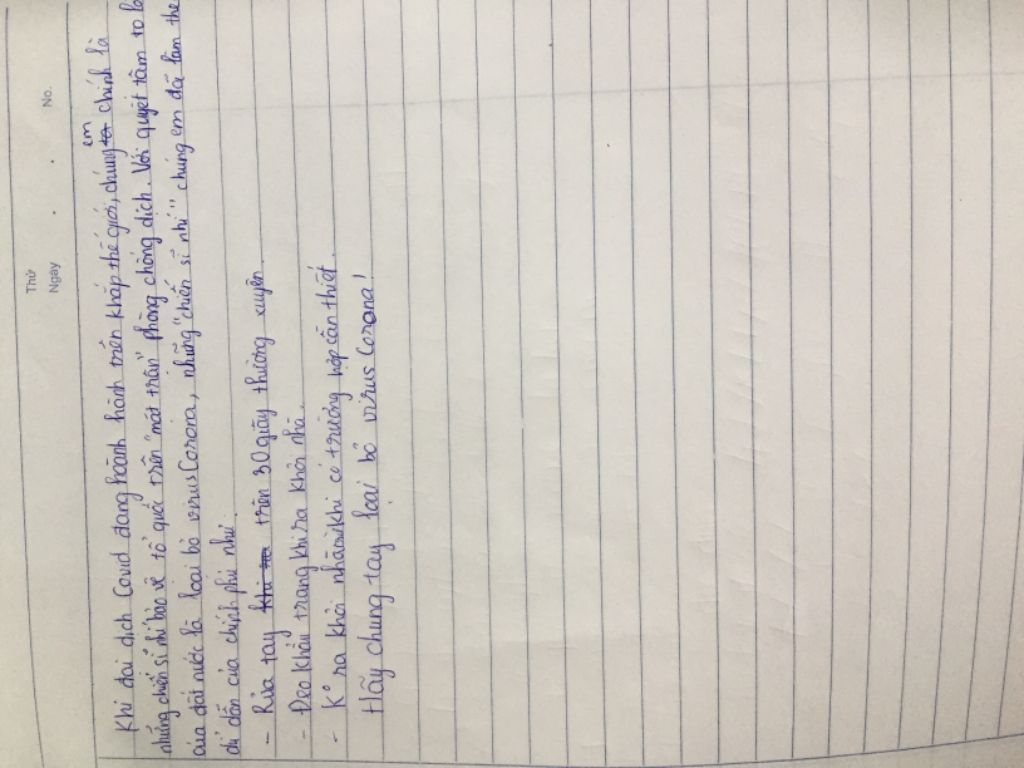 Thứ
Ngày
No.
Khi đại dịch Covid đang hoành hành trên khắp thế giới, chúng em chính là
những chiến sĩ nhí bảo vệ tổ quốc trên "mặt trận" phòng chống dịch. Với quyết tâm to
của đất nước là loại bỏ virus Corona, những "chiến sĩ nhí" chúng em đã làm
chỉ dẫn của chính phủ như:
- Rửa tay trên 30 giây thường xuyên.
- Đeo khẩu trang khi ra khỏi nhà.
- K° ra khỏi nhà khi có trường hợp cần thiết.
Hãy chung tay loại bỏ virus Corona!